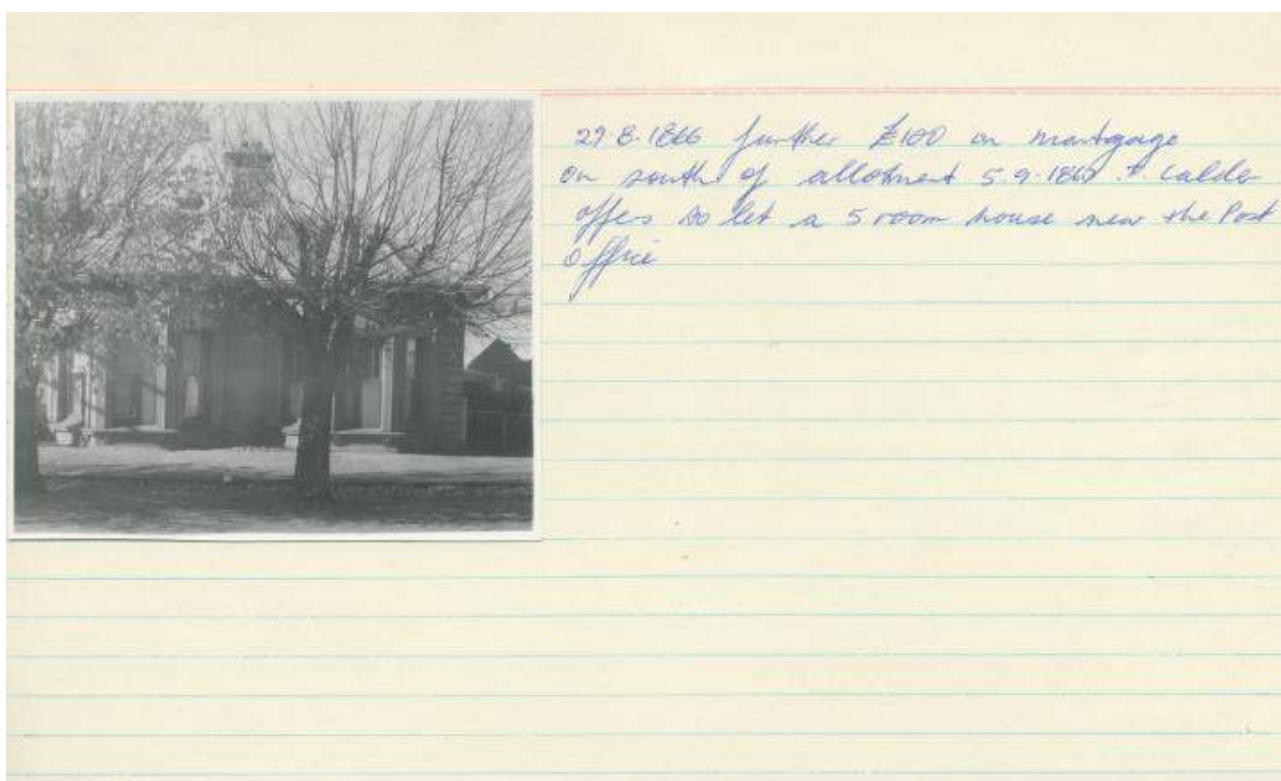 29.8.1866 further £100 on mortgage
on south of allotment 5.9.1867 Calder
offers to let a 5 room house near the Post
Office